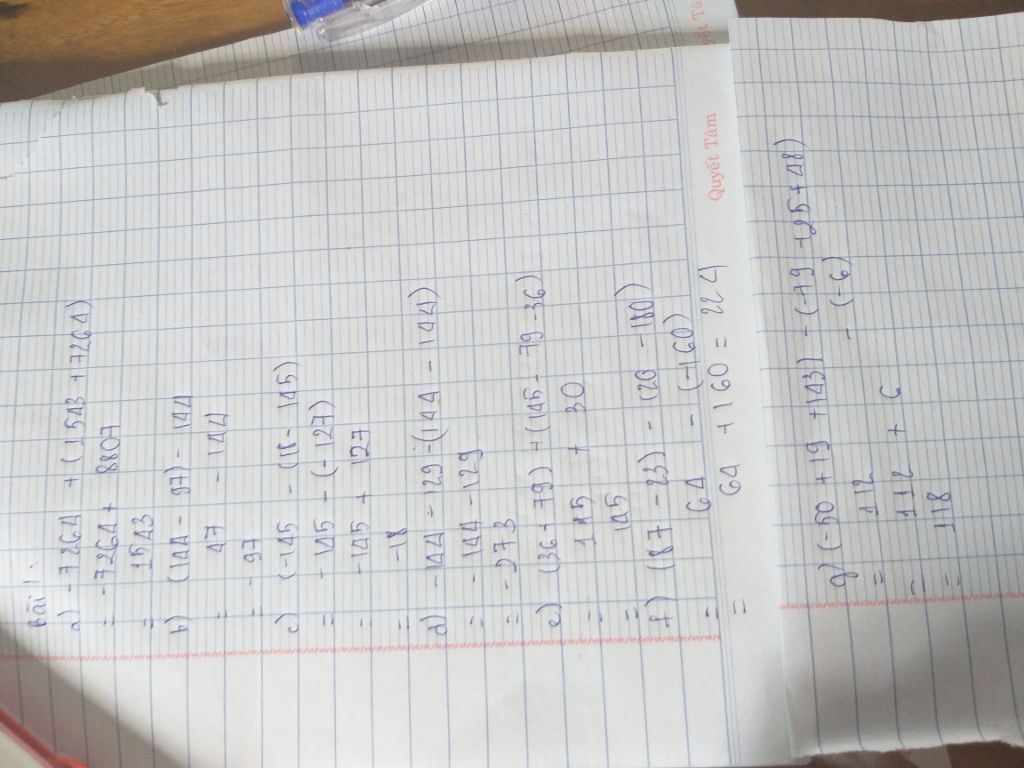 Bài 1:
a) -7264 + (1543 + 7264)
= -7264 + 8807
= 1543
b) (144 - 97) - 144
= 47 - 144
= -97
c) (-145 - (18 - 145)
= -145 - (-127)
= -145 + 127
= -18
d) -144 - 129 - (144 - 144)
= -144 - 129
= -273
e) (36 + 79) + (145 - 79 - 36)
= 115 + 30
= 145
f) (87 - 23) - (20 - 180)
= 64 - (-160)
= 64 + 160 = 224
Quyết Tâm
g) (-50 + 19 + 143) - (-79 + 25 + 48)
= 112 - (-6)
= 112 + 6
= 118